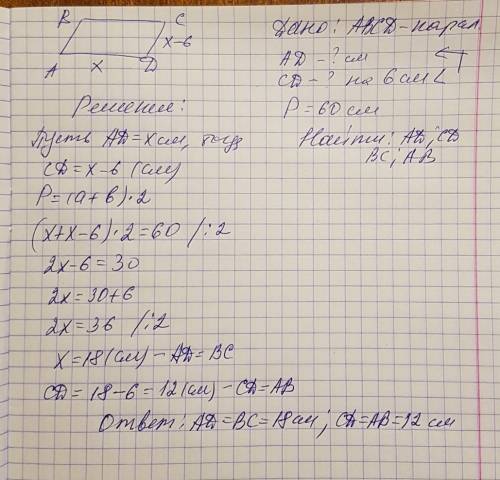 B C
x-6
A x D
Дано: ABCD-парал.
AD - ? см
CD - ? на 6 см <
P = 60 см
Найти: AD; CD
BC; AB
Решение:
Пусть AD = x см, тогд
CD = x-6 (см)
P = (a+b)·2
(x+x-6)·2=60 /:2
2x-6=30
2x=30+6
2x=36 /:2
x=18(см) - AD=BC
CD= 18-6 = 12(см) - CD=AB
Ответ: AD=BC=18см; CD=AB=12 см